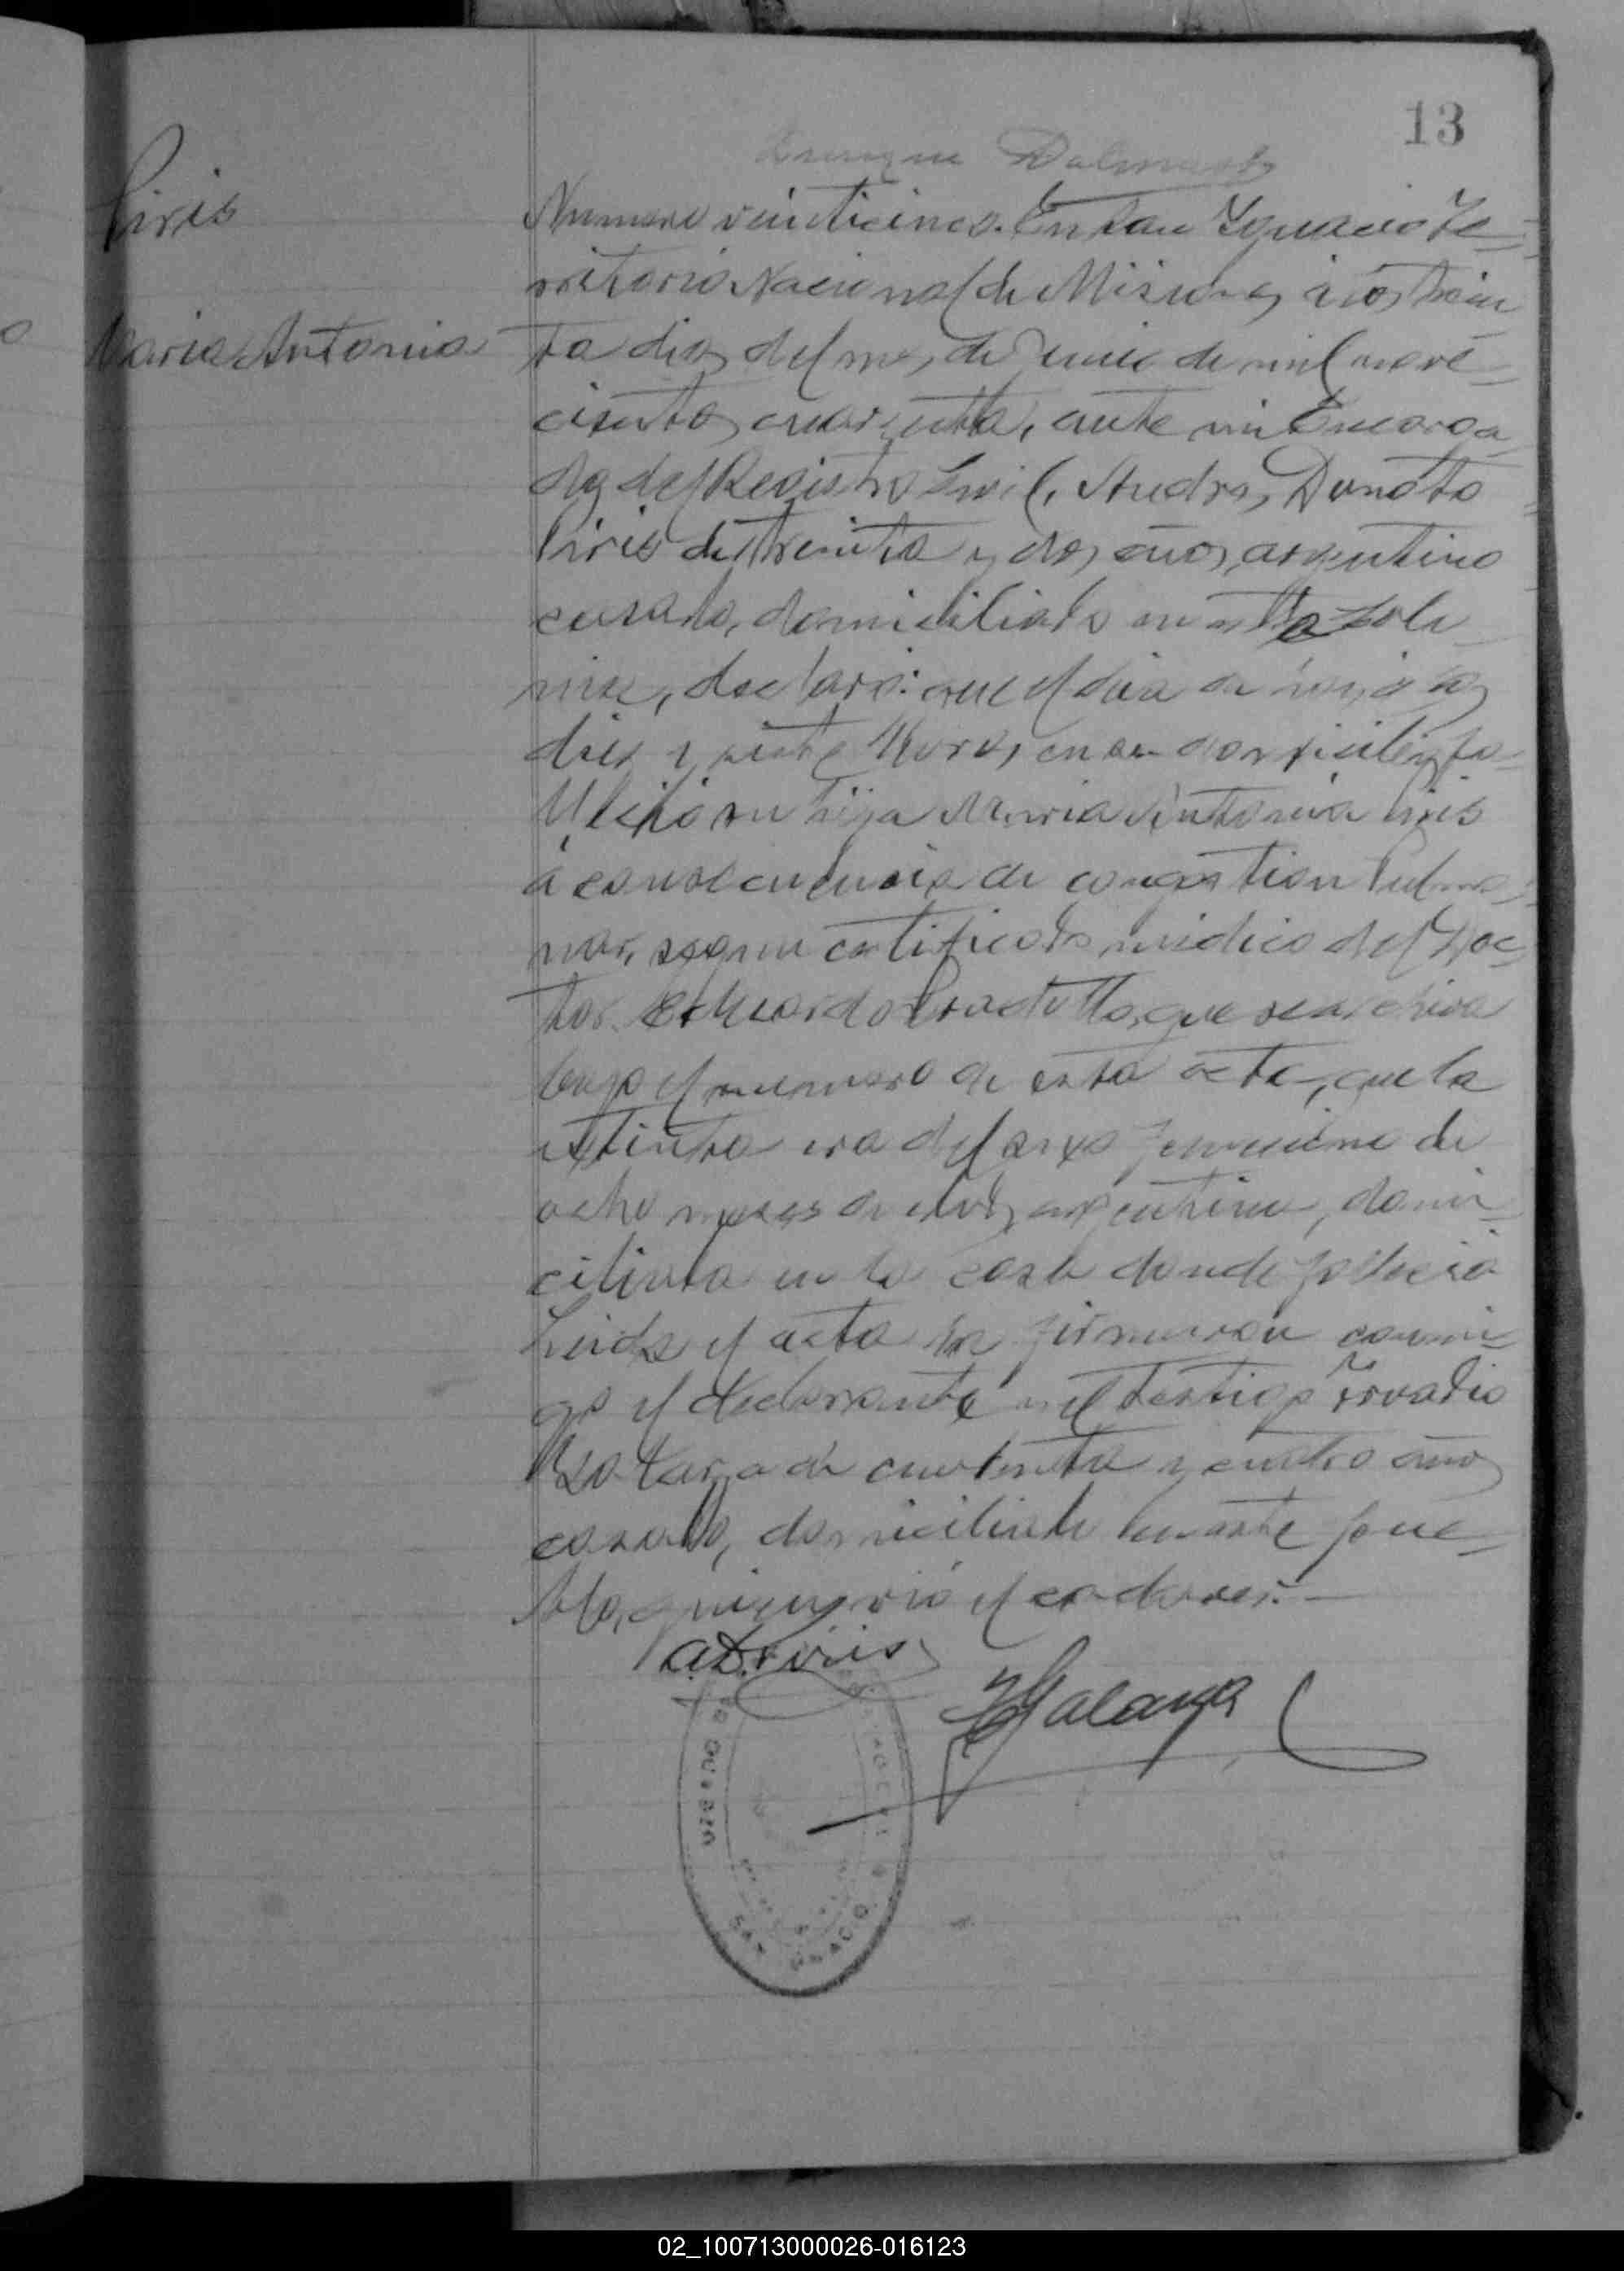 13
Piris
Maria Antonia
Numero veinticinco. En San Ygnacio Te=
rritorio Nacional de Misiones, á los trein
ta dias del mes de Junio de mil nove=
cientos cuarenta, ante mi Encarga
do del Registro Civil, Andres Donato
Piris de treinta y dos años, argentino
casado, domiciliado en esta Colo
nia, declaró: que el dia de hoy, a las
diez y siete horas, en su domicilio, fa=
lleció su hija Maria Antonia Piris
á consecuencia de congestion Pulmo=
nar, segun certificado médico del Doc=
tor Eduardo que se archiva
bajo el numero de esta acta, que la
extinta era del sexo femenino de
ocho meses de edad, argentina, domi=
ciliada en la casa donde falleció
Leida el acta la firmaron conmi=
go el declarante y el testigo
de cuarenta y cuatro años
casado, domiciliado en este pue=
blo, quien vió el cadaver.—
A.D. Piris
SAN IGNACIO
02_100713000026-016123